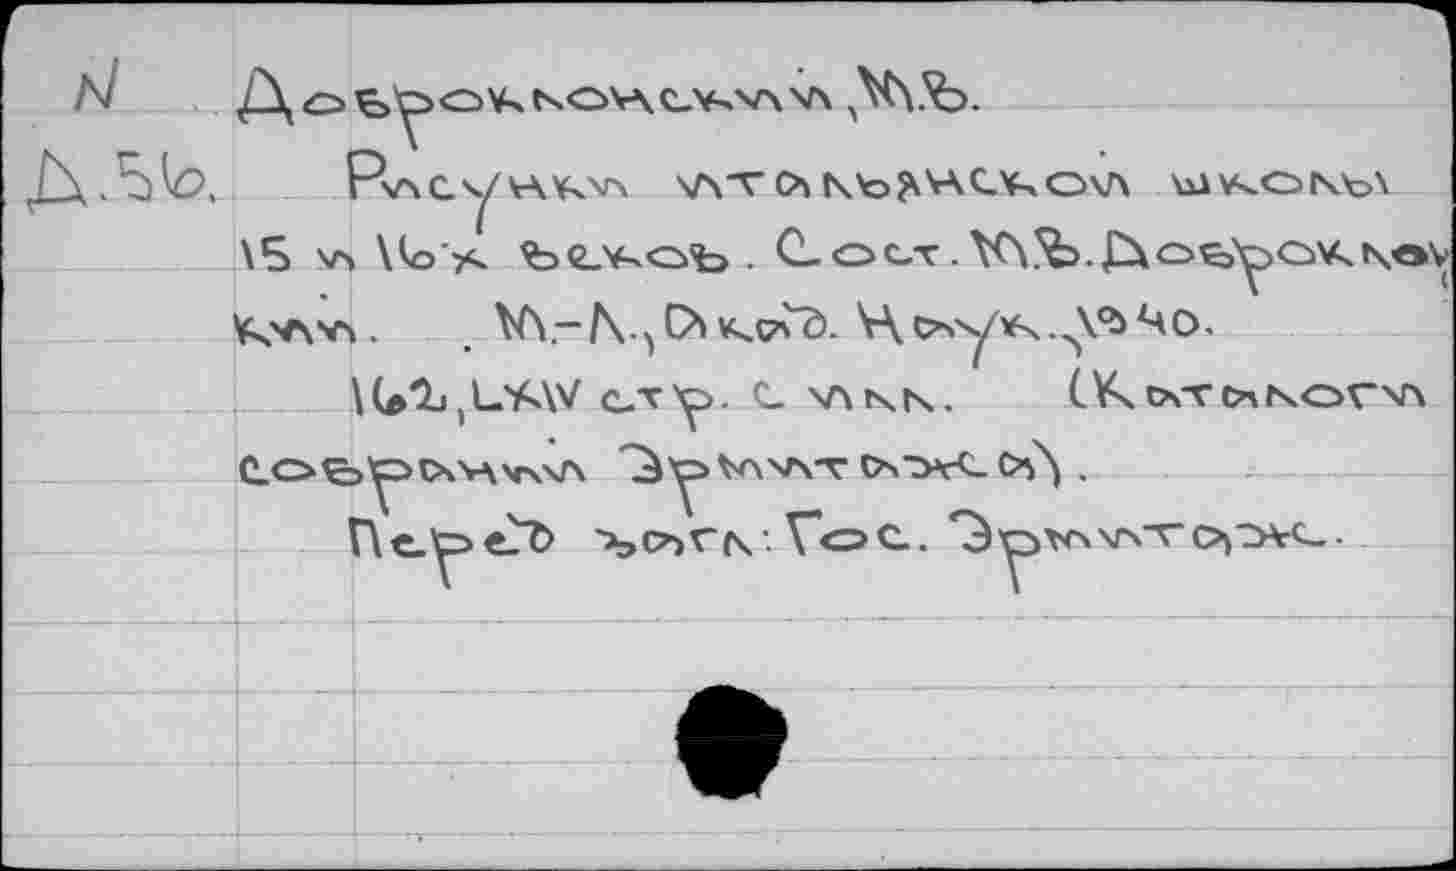 N Доброклонский, М.В.
Д.56. Рисунки итальянской школы
15 и 16х веков. Сост. М.В. Доброклон
ский. М.-Л., Акад. Наук., 1940.
162, LXIV стр. с илл. (Каталоги
собрания Эрмитажа).
Перед загл: Гос. Эрмитаж.